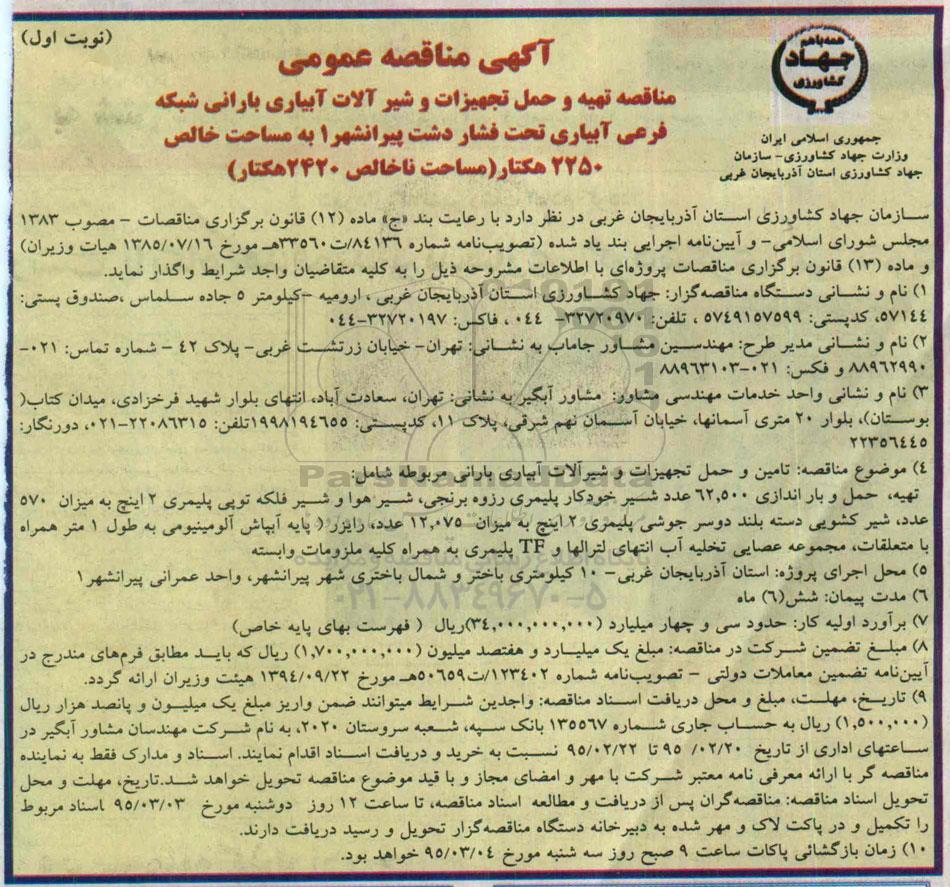 (نوبت اول)
همه با هم
جهاد
کشاورزی
جمهوری اسلامی ایران
وزارت جهاد کشاورزی- سازمان
جهاد کشاورزی استان آذربایجان غربی
آگهی مناقصه عمومی
مناقصه تهیه و حمل تجهیزات و شیر آلات آبیاری بارانی شبکه
فرعی آبیاری تحت فشار دشت پیرانشهر۱ به مساحت خالص
۲۲۵۰ هکتار(مساحت ناخالص ۲۴۲۰هکتار)
سـازمان جهاد کشاورزی اسـتان آذربایجان غربی در نظر دارد با رعایت بند «ج» ماده (۱۲) قانون برگزاری مناقصات – مصوب ۱۳۸۳
مجلس شورای اسلامی- و آیین‌نامه اجرایی بند یاد شده (تصویب‌نامه شماره ۸۴۱۳۶/ت۳۳۵۶۰هـ مورخ ۱۳۸۵/۰۷/۱۶ هیات وزیران)
و ماده (۱۳) قانون برگزاری مناقصات پروژه‌ای با اطلاعات مشروحه ذیل را به کلیه متقاضیان واجد شرایط واگذار نماید.
۱) نام و نشـانی دسـتگاه مناقصه‌گزار: جهاد کشـاورزی اسـتان آذربایجان غربی ، ارومیه –کیلومتر ۵ جاده سـلماس ،صندوق پستی:
۵۷۱۴۴، کدپستی: ۵۷۴۹۱۵۷۵۹۹ ، تلفن: ۳۲۷۲۰۹۷۰- ۰۴۴ ، فاکس: ۳۲۷۲۰۱۹۷-۰۴۴
۲) نام و نشـانی مدیر طرح: مهندسـین مشـاور جاماب به نشـانی: تهران- خیابان زرتشـت غربی- پلاک ۴۲ – شـماره تماس: ۰۲۱-
۸۸۹۶۲۹۹۰ و فکس: ۰۲۱-۸۸۹۶۳۱۰۳
۳) نام و نشانی واحد خدمات مهندسی مشاور: مشاور آبگیر به نشانی: تهران، سعادت آباد، انتهای بلوار شهید فرخزادی، میدان کتاب(
بوسـتان)، بلوار ۲۰ متری آسمانها، خیابان آسـمان نهم شرقی، پلاک ۱۱، کدپسـتی: ۱۹۹۸۱۹۴۶۵۵تلفن: ۲۲۰۸۶۳۱۵-۰۲۱، دورنگار:
۲۲۳۵۶۴۴۵
۴) موضوع مناقصه: تامین و حمل تجهیزات و شیرآلات آبیاری بارانی مربوطه شامل:
تهیه، حمل و بار اندازی ۶۲,۵۰۰ عدد شـیر خودکار پلیمری رزوه برنجی، شـیر هوا و شـیر فلکه توپی پلیمری ۲ اینچ به میزان ۵۷۰
عدد، شیر کشویی دسته بلند دوسر جوشی پلیمری ۲ اینچ به میزان ۱۲,۰۷۵ عدد، رایزر ( پایه آبپاش آلومینیومی به طول ۱ متر همراه
با متعلقات، مجموعه عصایی تخلیه آب انتهای لترالها و TF پلیمری به همراه کلیه ملزومات وابسته
۵) محل اجرای پروژه: استان آذربایجان غربی- ۱۰ کیلومتری باختر و شمال باختری شهر پیرانشهر، واحد عمرانی پیرانشهر۱
۶) مدت پیمان: شش(۶) ماه
۷) برآورد اولیه کار: حدود سی و چهار میلیارد (۳۴,۰۰۰,۰۰۰,۰۰۰)ریال ( فهرست بهای پایه خاص)
۸) مبلـغ تضمین شـرکت در مناقصه: مبلغ یک میلیـارد و هفتصد میلیون (۱,۷۰۰,۰۰۰,۰۰۰) ریال که بایـد مطابق فرم‌های مندرج در
آیین‌نامه تضمین معاملات دولتی – تصویب‌نامه شماره ۱۲۳۴۰۲/ت۵۰۶۵۹هـ مورخ ۱۳۹۴/۰۹/۲۲ هیئت وزیران ارائه گردد.
۹) تاریـخ، مهلـت، مبلغ و محل دریافت اسـناد مناقصه: واجدین شـرایط میتوانند ضمن واریز مبلغ یک میلیـون و پانصد هزار ریال
(۱,۵۰۰,۰۰۰) ریال به حسـاب جاری شـماره ۱۳۵۵۶۷ بانک سـپه، شـعبه سروستان ۲۰۲۰، به نام شـرکت مهندسان مشاور آبگیر در
سـاعتهای اداری از تاریخ ۹۵/ ۰۲/۲۰ تا ۹۵/۰۲/۲۲ نسـبت به خرید و دریافت اسـناد اقدام نمایند. اسـناد و مدارک فقط به نماینده
مناقصه گر با ارائه معرفی نامه معتبر شـرکت با مهر و امضای مجاز و با قید موضوع مناقصه تحویل خواهد شـد.تاریخ، مهلت و محل
تحویل اسناد مناقصه: مناقصه‌گران پس از دریافت و مطالعه اسناد مناقصه، تا ساعت ۱۲ روز دوشنبه مورخ ۹۵/۰۳/۰۳ اسناد مربوط
را تکمیل و در پاکت لاک و مهر شده به دبیرخانه دستگاه مناقصه‌گزار تحویل و رسید دریافت دارند.
۱۰) زمان بازگشائی پاکات ساعت ۹ صبح روز سه شنبه مورخ ۹۵/۰۳/۰۴ خواهد بود.
۰۲۱-۸۸۳۴۹۶۷۰-۵